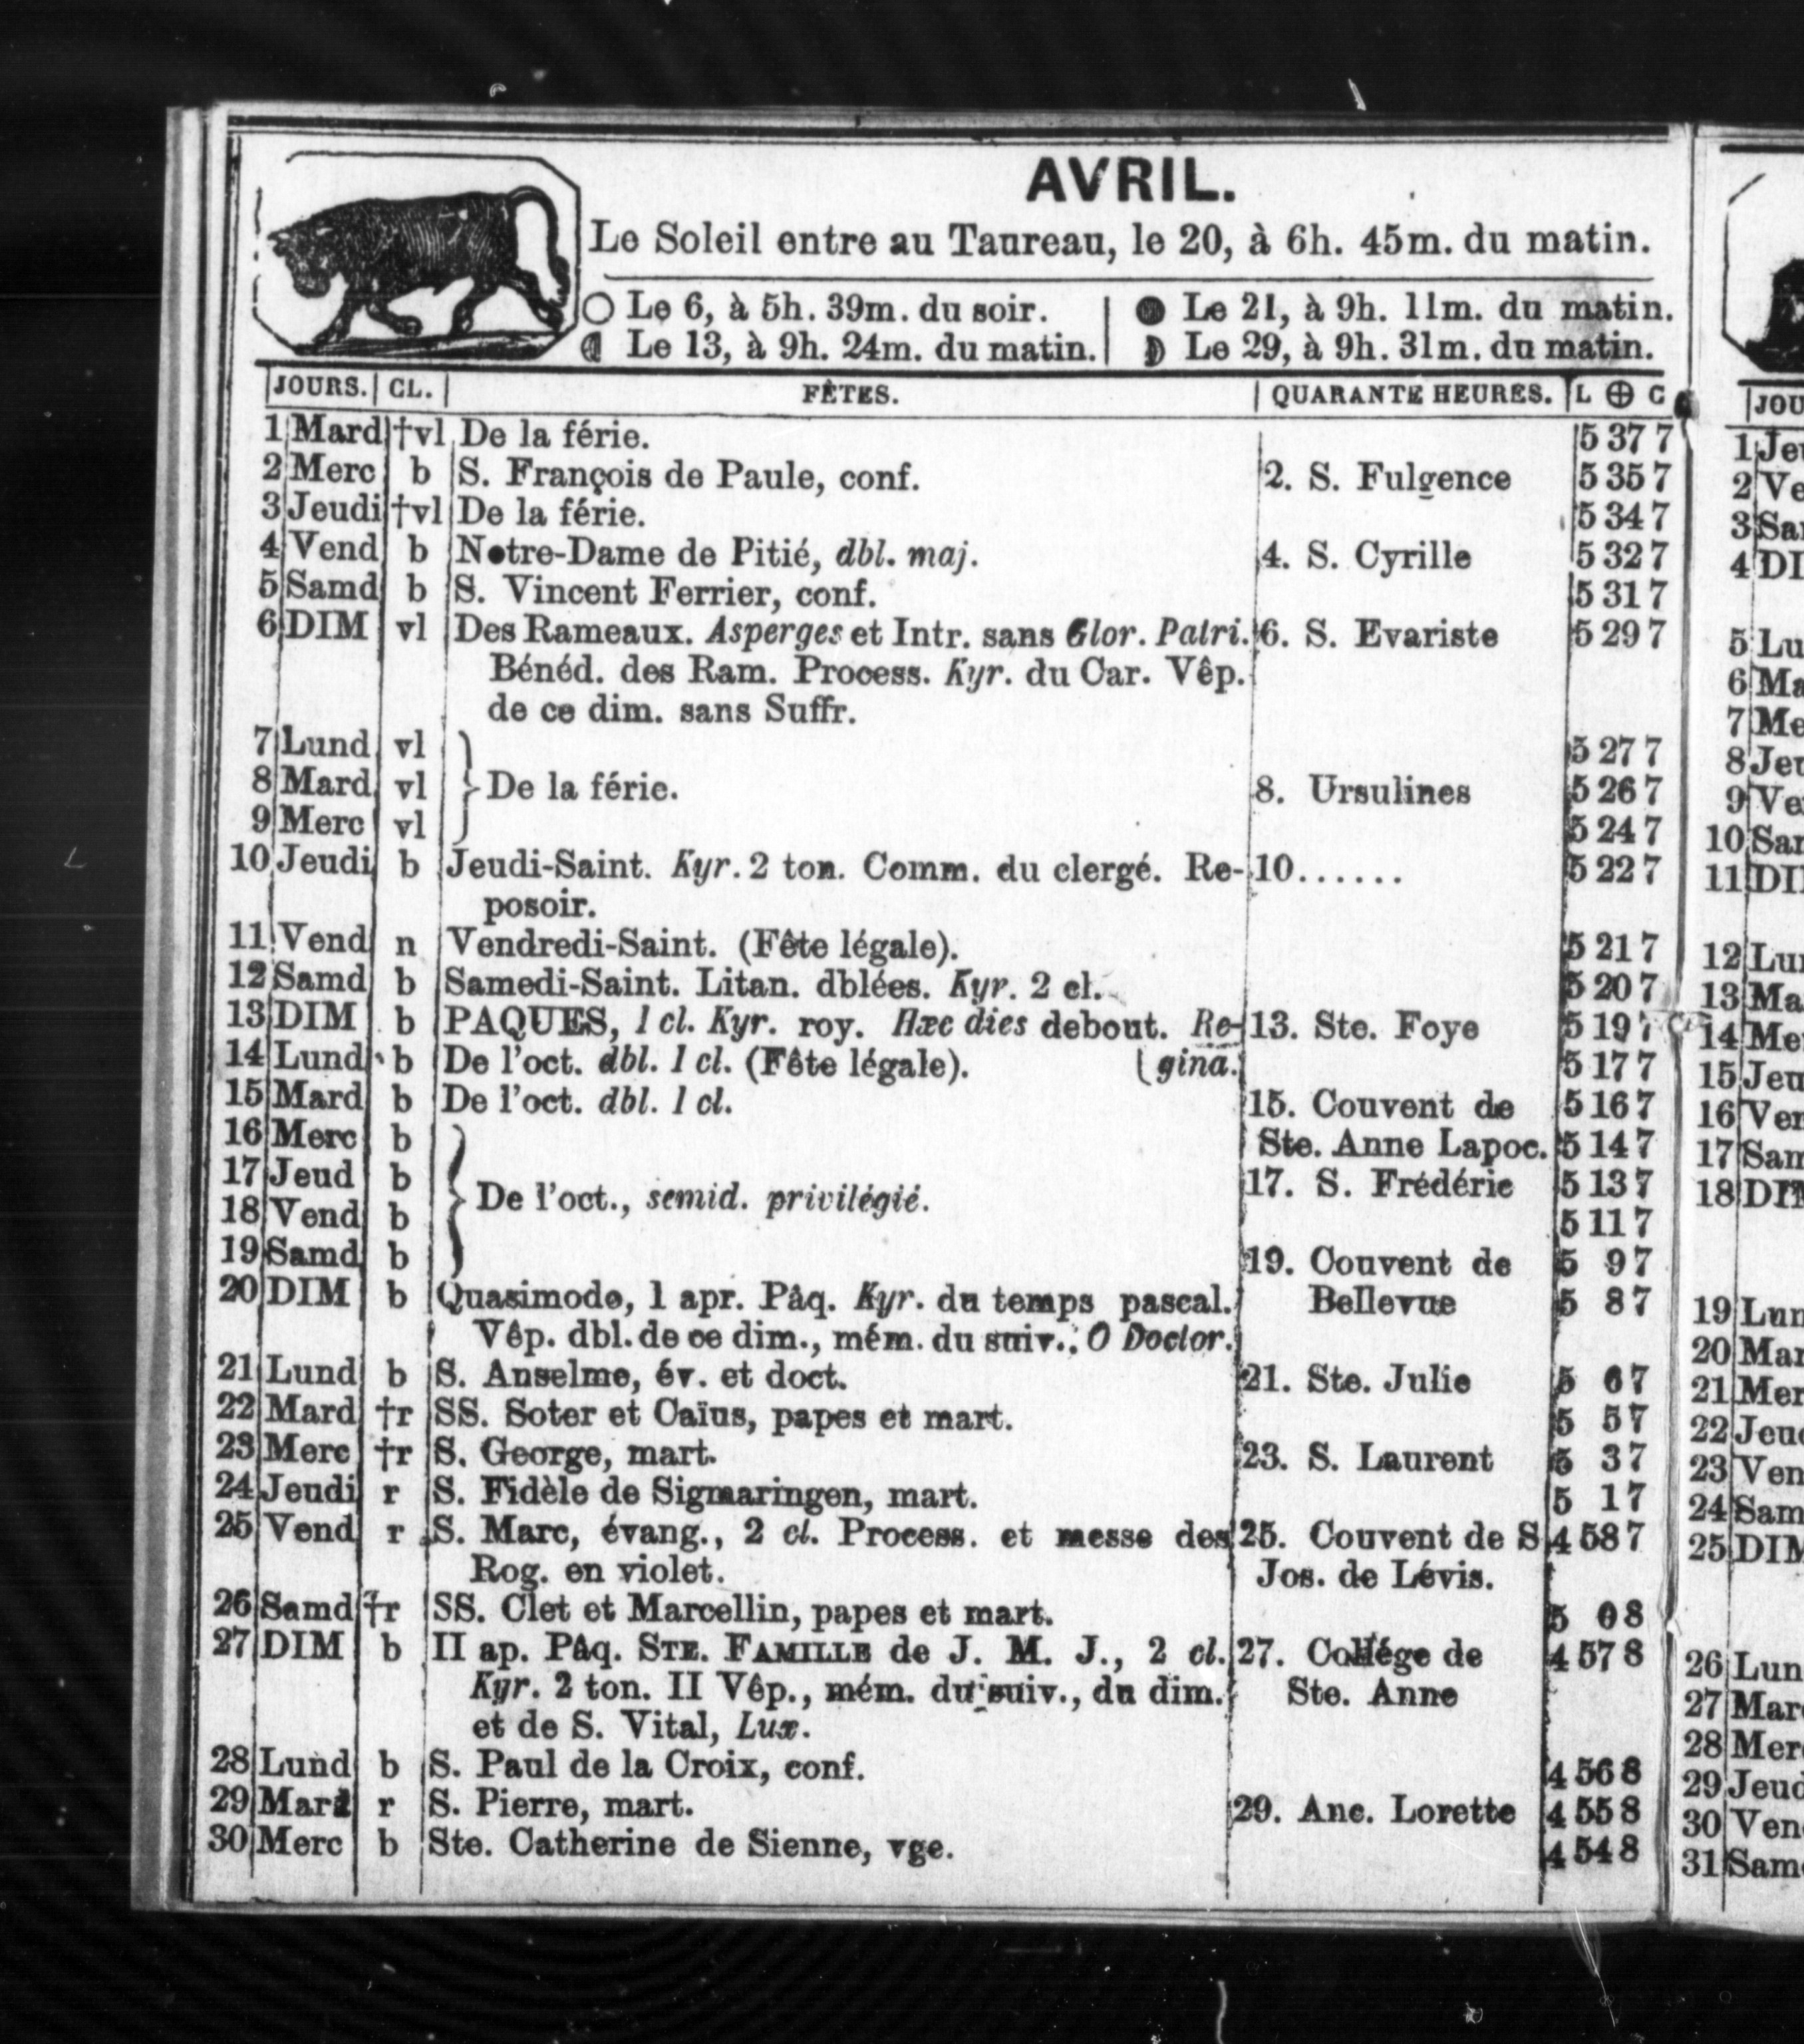 AVRIL.
Le Soleil entre au Taureau, le 20, à 6h. 45m. du matin.
Le 6, à 5h. 39m. du soir. Le 21, à 9h. 11m. du matin.
Le 13, à 9h. 24m. du matin. Le 29, à 9h. 31m. du matin.
JOURS. CL. FÊTES. QUARANTE HEURES. L ⊕ C
1 Mard †vl De la férie. 5 37 7
2 Merc b S. François de Paule, conf. 2. S. Fulgence 5 35 7
3 Jeudi †vl De la férie. 5 34 7
4 Vend b Notre-Dame de Pitié, dbl. maj. 4. S. Cyrille 5 32 7
5 Samd b S. Vincent Ferrier, conf. 5 31 7
6 DIM vl Des Rameaux. Asperges et Intr. sans Glor. Patri. 6. S. Evariste 5 29 7
Bénéd. des Ram. Process. Kyr. du Car. Vêp.
de ce dim. sans Suffr.
7 Lund vl 5 27 7
8 Mard vl De la férie. 8. Ursulines 5 26 7
9 Merc vl 5 24 7
10 Jeudi b Jeudi-Saint. Kyr. 2 ton. Comm. du clergé. Re- 10...... 5 22 7
posoir.
11 Vend n Vendredi-Saint. (Fête légale). 5 21 7
12 Samd b Samedi-Saint. Litan. dblées. Kyr. 2 cl. 5 20 7
13 DIM b PAQUES, 1 cl. Kyr. roy. Hæc dies debout. Re- 13. Ste. Foye 5 19 7
14 Lund b De l'oct. dbl. 1 cl. (Fête légale). (gina. 5 17 7
15 Mard b De l'oct. dbl. 1 cl. 15. Couvent de 5 16 7
16 Merc b Ste. Anne Lapoc. 5 14 7
17 Jeud b De l'oct., semid. privilégié. 17. S. Frédéric 5 13 7
18 Vend b 5 11 7
19 Samd b 19. Couvent de 5 9 7
20 DIM b Quasimodo, 1 apr. Pâq. Kyr. du temps pascal. Bellevue 5 8 7
Vêp. dbl. de ce dim., mém. du suiv., O Doctor.
21 Lund b S. Anselme, év. et doct. 21. Ste. Julie 5 6 7
22 Mard †r SS. Soter et Caïus, papes et mart. 5 5 7
23 Merc †r S. George, mart. 23. S. Laurent 5 3 7
24 Jeudi r S. Fidèle de Sigmaringen, mart. 5 1 7
25 Vend r S. Marc, évang., 2 cl. Process. et messe des 25. Couvent de S 4 58 7
Rog. en violet. Jos. de Lévis.
26 Samd †r SS. Clet et Marcellin, papes et mart. 5 0 8
27 DIM b II ap. Pâq. STE. FAMILLE de J. M. J., 2 cl. 27. Collége de 4 57 8
Kyr. 2 ton. II Vêp., mém. du suiv., du dim. Ste. Anne
et de S. Vital, Lux.
28 Lund b S. Paul de la Croix, conf. 4 56 8
29 Mard r S. Pierre, mart. 29. Anc. Lorette 4 55 8
30 Merc b Ste. Catherine de Sienne, vge. 4 54 8
JOU
1 Jeu
2 Ve
3 Sa
4 DI
5 Lu
6 Ma
7 Me
8 Jeu
9 Ve
10 Sa
11 DI
12 Lu
13 Ma
14 Me
15 Jeu
16 Ven
17 Sam
18 DI
19 Lun
20 Mar
21 Mer
22 Jeu
23 Ven
24 Sam
25 DIM
26 Lun
27 Mar
28 Mer
29 Jeud
30 Ven
31 Sam